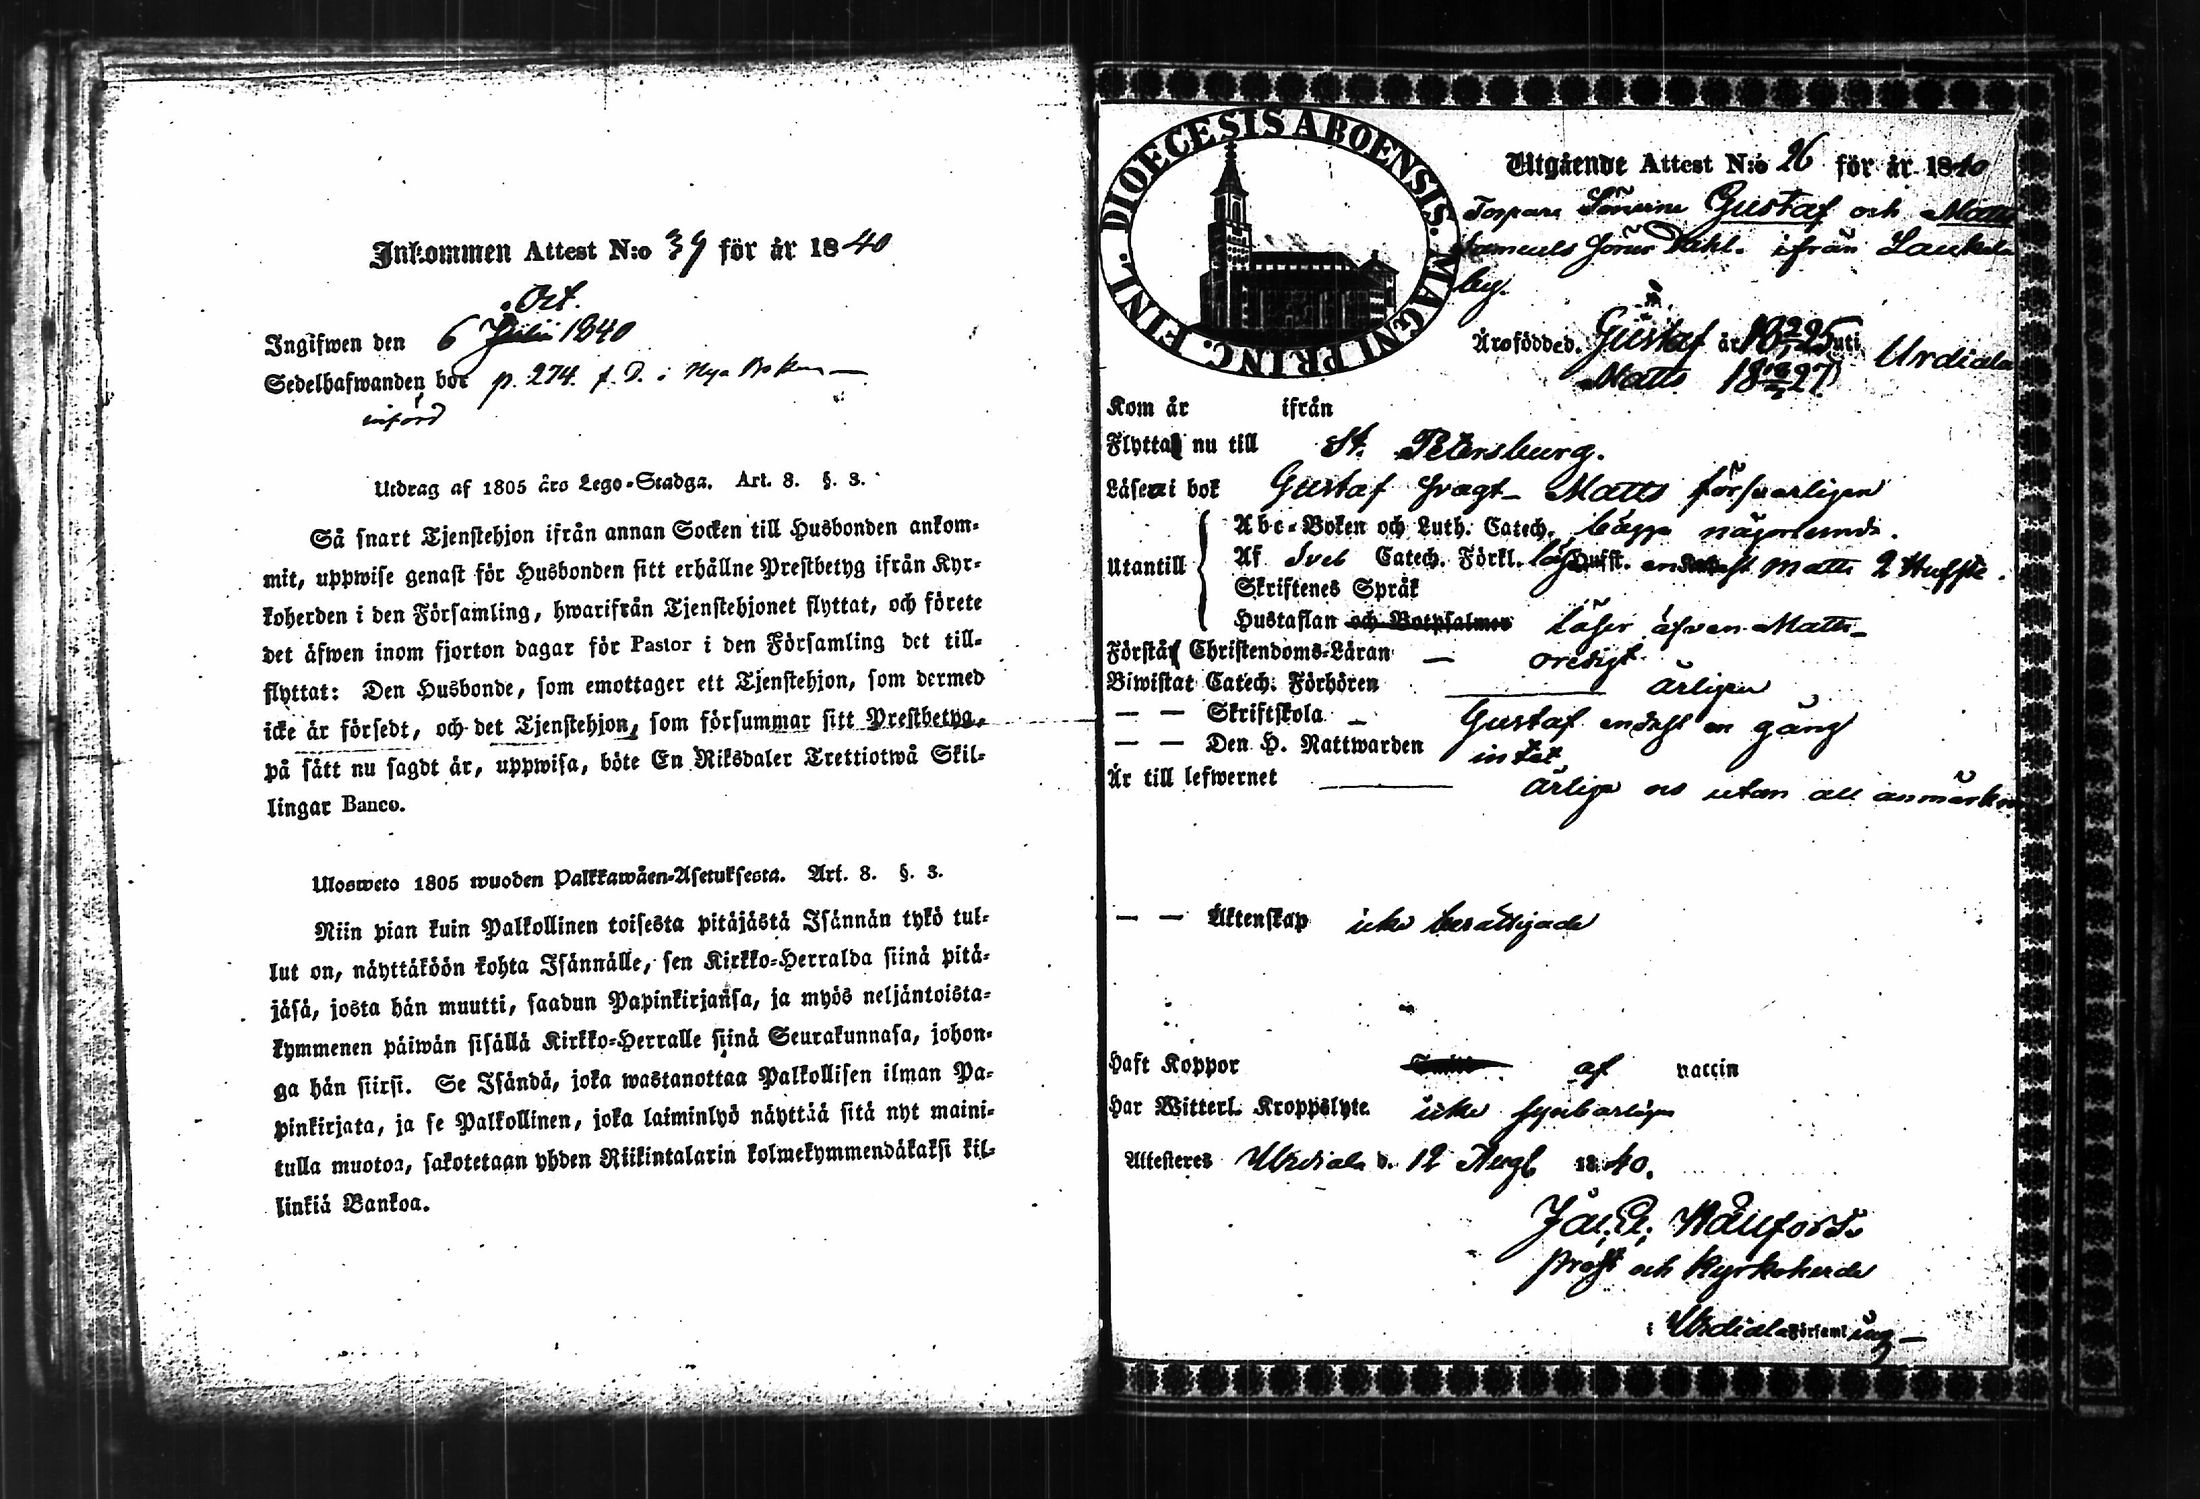 Inkommen Attest N:o 39 för år 1840
Oct.
Ingifwen den 6 Julii 1840
Sedelhafwanden bor p. 274. f. D. i Nya Boken
införd
Utdrag af 1805 års Lego-Stadga. Art. 8. §. 3.
Så snart Tjenstehjon ifrån annan Socken till Husbonden ankom-
mit, uppwise genast för Husbonden sitt erhållne Prestbetyg ifrån Kyr-
koherden i den Församling, hwarifrån Tjenstehjonet flyttat, och förete
det äfwen inom fjorton dagar för Pastor i den Församling det till-
flyttat: Den Husbonde, som emottager ett Tjenstehjon, som dermed
icke är försedt, och det Tjenstehjon, som försummar sitt Prestbetyg,
på sätt nu sagdt är, uppwisa, böte En Riksdaler Trettiotwå Skil-
lingar Banco.
Ulosweto 1805 wuoden Palkkawäen-Asetuksesta. Art. 8. §. 3.
Niin pian kuin Palkollinen toisesta pitäjästä Isännän tykö tul-
lut on, näyttäköön kohta Isännälle, sen Kirkko-Herralda siinä pitä-
jäsä, josta hän muutti, saadun Papinkirjansa, ja myös neljäntoista-
kymmenen päiwän sisällä Kirkko-Herralle siinä Seurakunnasa, johon-
ga hän siirsi. Se Isändä, joka wastanottaa Palkollisen ilman Pa-
pinkirjata, ja se Palkollinen, joka laiminlyö näyttää sitä nyt maini-
tulla muotoa, sakotetaan yhden Riikintalarin kolmekymmendäkaksi kil-
linkiä Bankoa.
DIOECESIS ABOENSIS. MAGNI PRINC. FINL.
Utgående Attest N:o 26 för år 1840
Torpare Sönerne Gustaf och Matts
Samuels Söner Dahl. ifrån Laukela
by.
Äro födde d. Gustaf år 18 25 uti Urdiala
Matts 18 27
Kom år ifrån
Flytta nu till St. Petersburg.
Läsa i bok Gustaf svagt Matts försvarligen
Utantill
Abc-Boken och Luth. Catech. bägge någorlunda.
Af Sveb Catech. Förkl. Matts 2 Hufst.
Skriftenes Språk
Hustaflan och Botpsalmer läser äfven Matts
Förstå Christendoms-Läran oredigt
Biwistat Catech. Förhören årligen
— — Skriftskola Gustaf endast en gång
— — Den H. Nattwarden intet
Är till lefwernet ärliga och utan all anmärkn
— — Äktenskap icke berättigade
Haft Koppor af vaccin
Har Witterl. Kroppslyte icke synbarligen
Attesteres Urdiala d. 12 Aug 1840.
Wallfors
Prost och Kyrkoherde
i Urdiala Församling